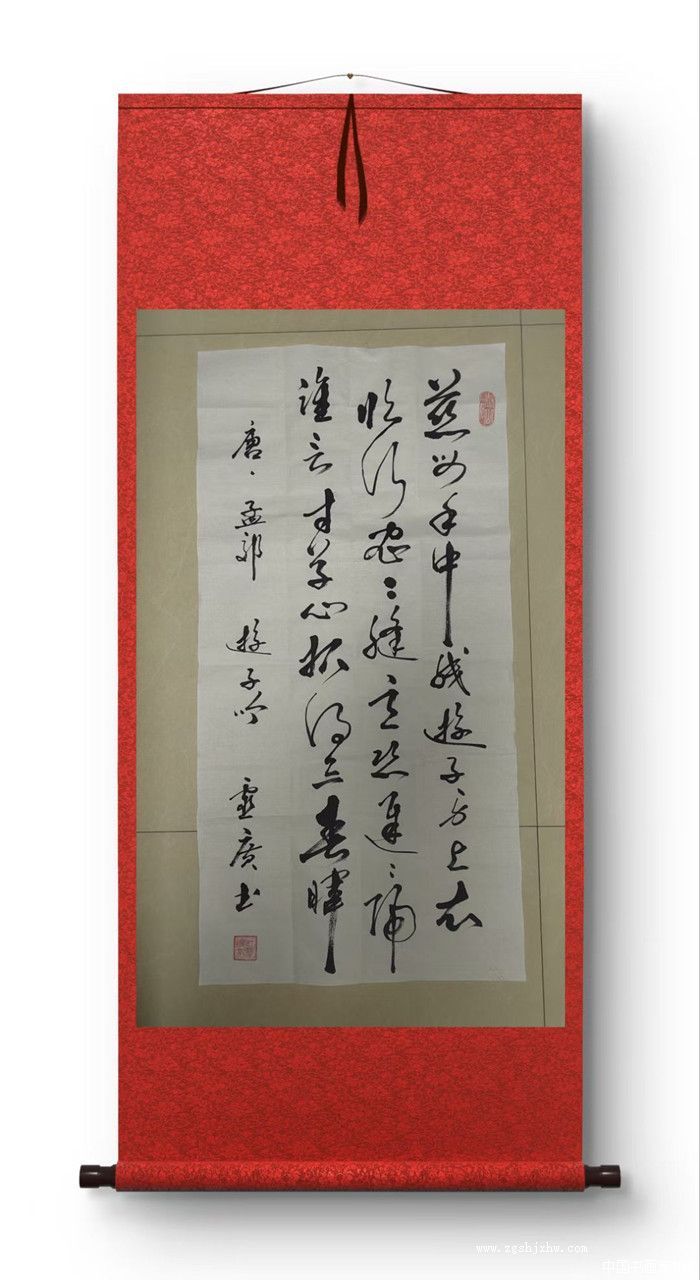 慈母手中线遊子身上衣
临行密々缝意恐遲々歸
誰言寸草心报得三春暉
唐·孟郊 遊子吟 廣书
www.zgshjzhw.com
中国书画